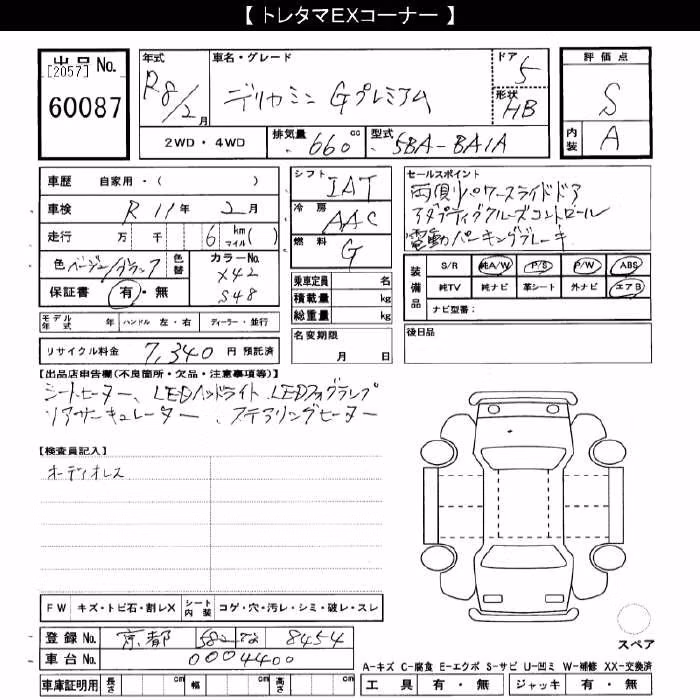 【 トレタマEXコーナー 】
出品No.
[2057]
60087
年式
R8/2月
車名・グレード
デリカミニ Gプレミアム
ドア
5
形状
HB
評価点
S
内装
A
2WD・4WD
排気量 660 cc
型式 5BA-BA1A
車歴 自家用・( )
車検 R11年 2月
走行 万 千 6 km マイル( )
色 ベージュ/ブラック
色替
カラーNo.
X42
S48
保証書 有・無
シフト
IAT
冷房
AAC
燃料
G
乗車定員 名
積載量 kg
総重量 kg
名変期限
月 日
セールスポイント
両側パワースライドドア
アダプティブクルーズコントロール
電動パーキングブレーキ
装備品
S/R 純A/W P/S P/W ABS
純TV 純ナビ 革シート 外ナビ エアB
ナビ型番:
後日品
モデル年式 年 ハンドル 左・右 ディーラー・並行
リサイクル料金 7,340 円 預託済
【出品店申告欄(不良箇所・欠品・注意事項等)】
シートヒーター、LEDヘッドライト、LEDフォグランプ
リアサーキュレーター、ステアリングヒーター
【検査員記入】
オーディオレス
FW キズ・トビ石・割レX シート内装 コゲ・穴・汚レ・シミ・破レ・スレ
登録No. 京都 582 8454
車台No. 0004400
車庫証明用 長さ cm 幅 cm 高さ cm
スペア
A-キズ C-腐食 E-エクボ S-サビ U-凹ミ W-補修 XX-交換済
工具 有・無 ジャッキ 有・無